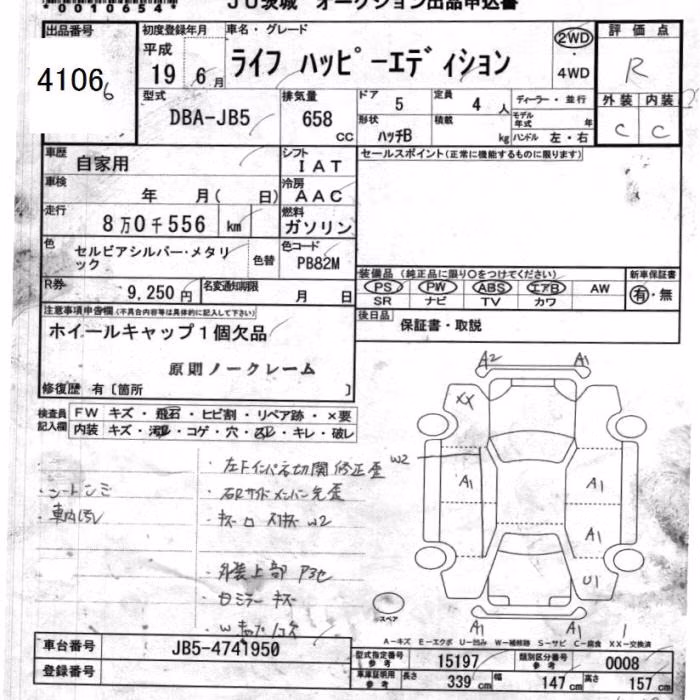 *00106544*
JU茨城 オークション出品申込書
出品番号
4106
初度登録年月
平成
19年 6月
車名・グレード
ライフ ハッピーエディション
2WD
・
4WD
評価点
R
外装 内装
C C
型式
DBA-JB5
排気量
658 CC
ドア 5
定員 4人
ディーラー・並行
形状 ハッチB
積載 kg
モデル年式 年
ハンドル 左・右
車歴 自家用
シフト IAT
セールスポイント(正常に機能するものに限ります)
車検 年 月( 日)
冷房 AAC
走行 8万0千556 km
燃料 ガソリン
色 セルビアシルバー・メタリック
色替
色コード PB82M
装備品 (純正品に限り○をつけてください)
新車保証書
PS PW ABS エアB AW
SR ナビ TV カワ
有・無
R券 9,250円
名変通知期限 月 日
後日品 保証書・取説
注意事項申告欄(不具合内容等は具体的に記入して下さい)
ホイールキャップ1個欠品
原則ノークレーム
修復歴 有〔箇所 〕
検査員記入欄
FW キズ・飛石・ヒビ割・リペア跡・×要
内装 キズ・汚れ・コゲ・穴・スレ・キレ・破レ
左Fインパネ切関修正歪
右Rサイドメンバー先歪
外装上部
ミラー キズ
A2 A1
XX
W2
A1 A1
A1
U1
A1 A1
スペア
A-キズ E-エクボ U-凹み W-補修跡 S-サビ C-腐食 XX-交換済
車台番号 JB5-4741950
登録番号
型式指定番号 参考 15197
類別区分番号 参考 0008
車庫証明用 参考 長さ 339cm 幅 147cm 高さ 157cm